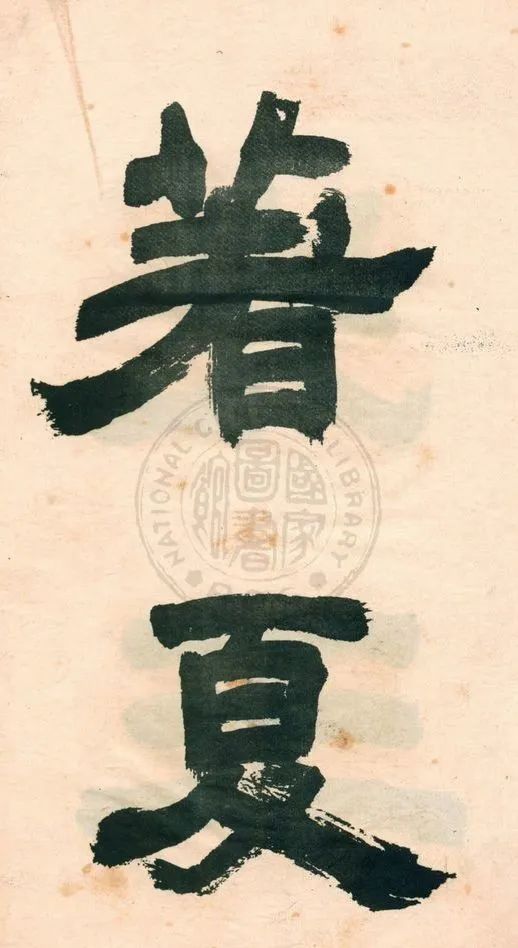 著
夏
NATIONAL C LIBRARY
國家
圖書
館